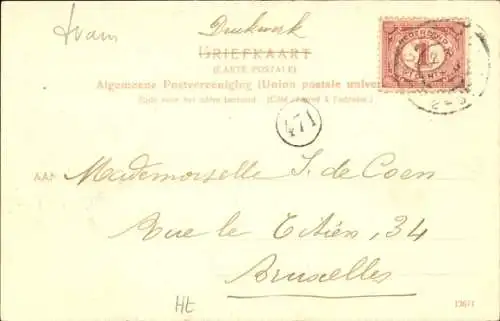 fram
Drukwerk
BRIEFKAART
(CARTE POSTALE)
Algemeene Postvereeniging (Union postale univer
Zijde voor het adres bestemd. (Côté réservé à l'adresse.)
NEDERLAND
1
CENT
471
AAN Mademoiselle J. de Coen
Rue le Titien, 34
Bruxelles
Ht